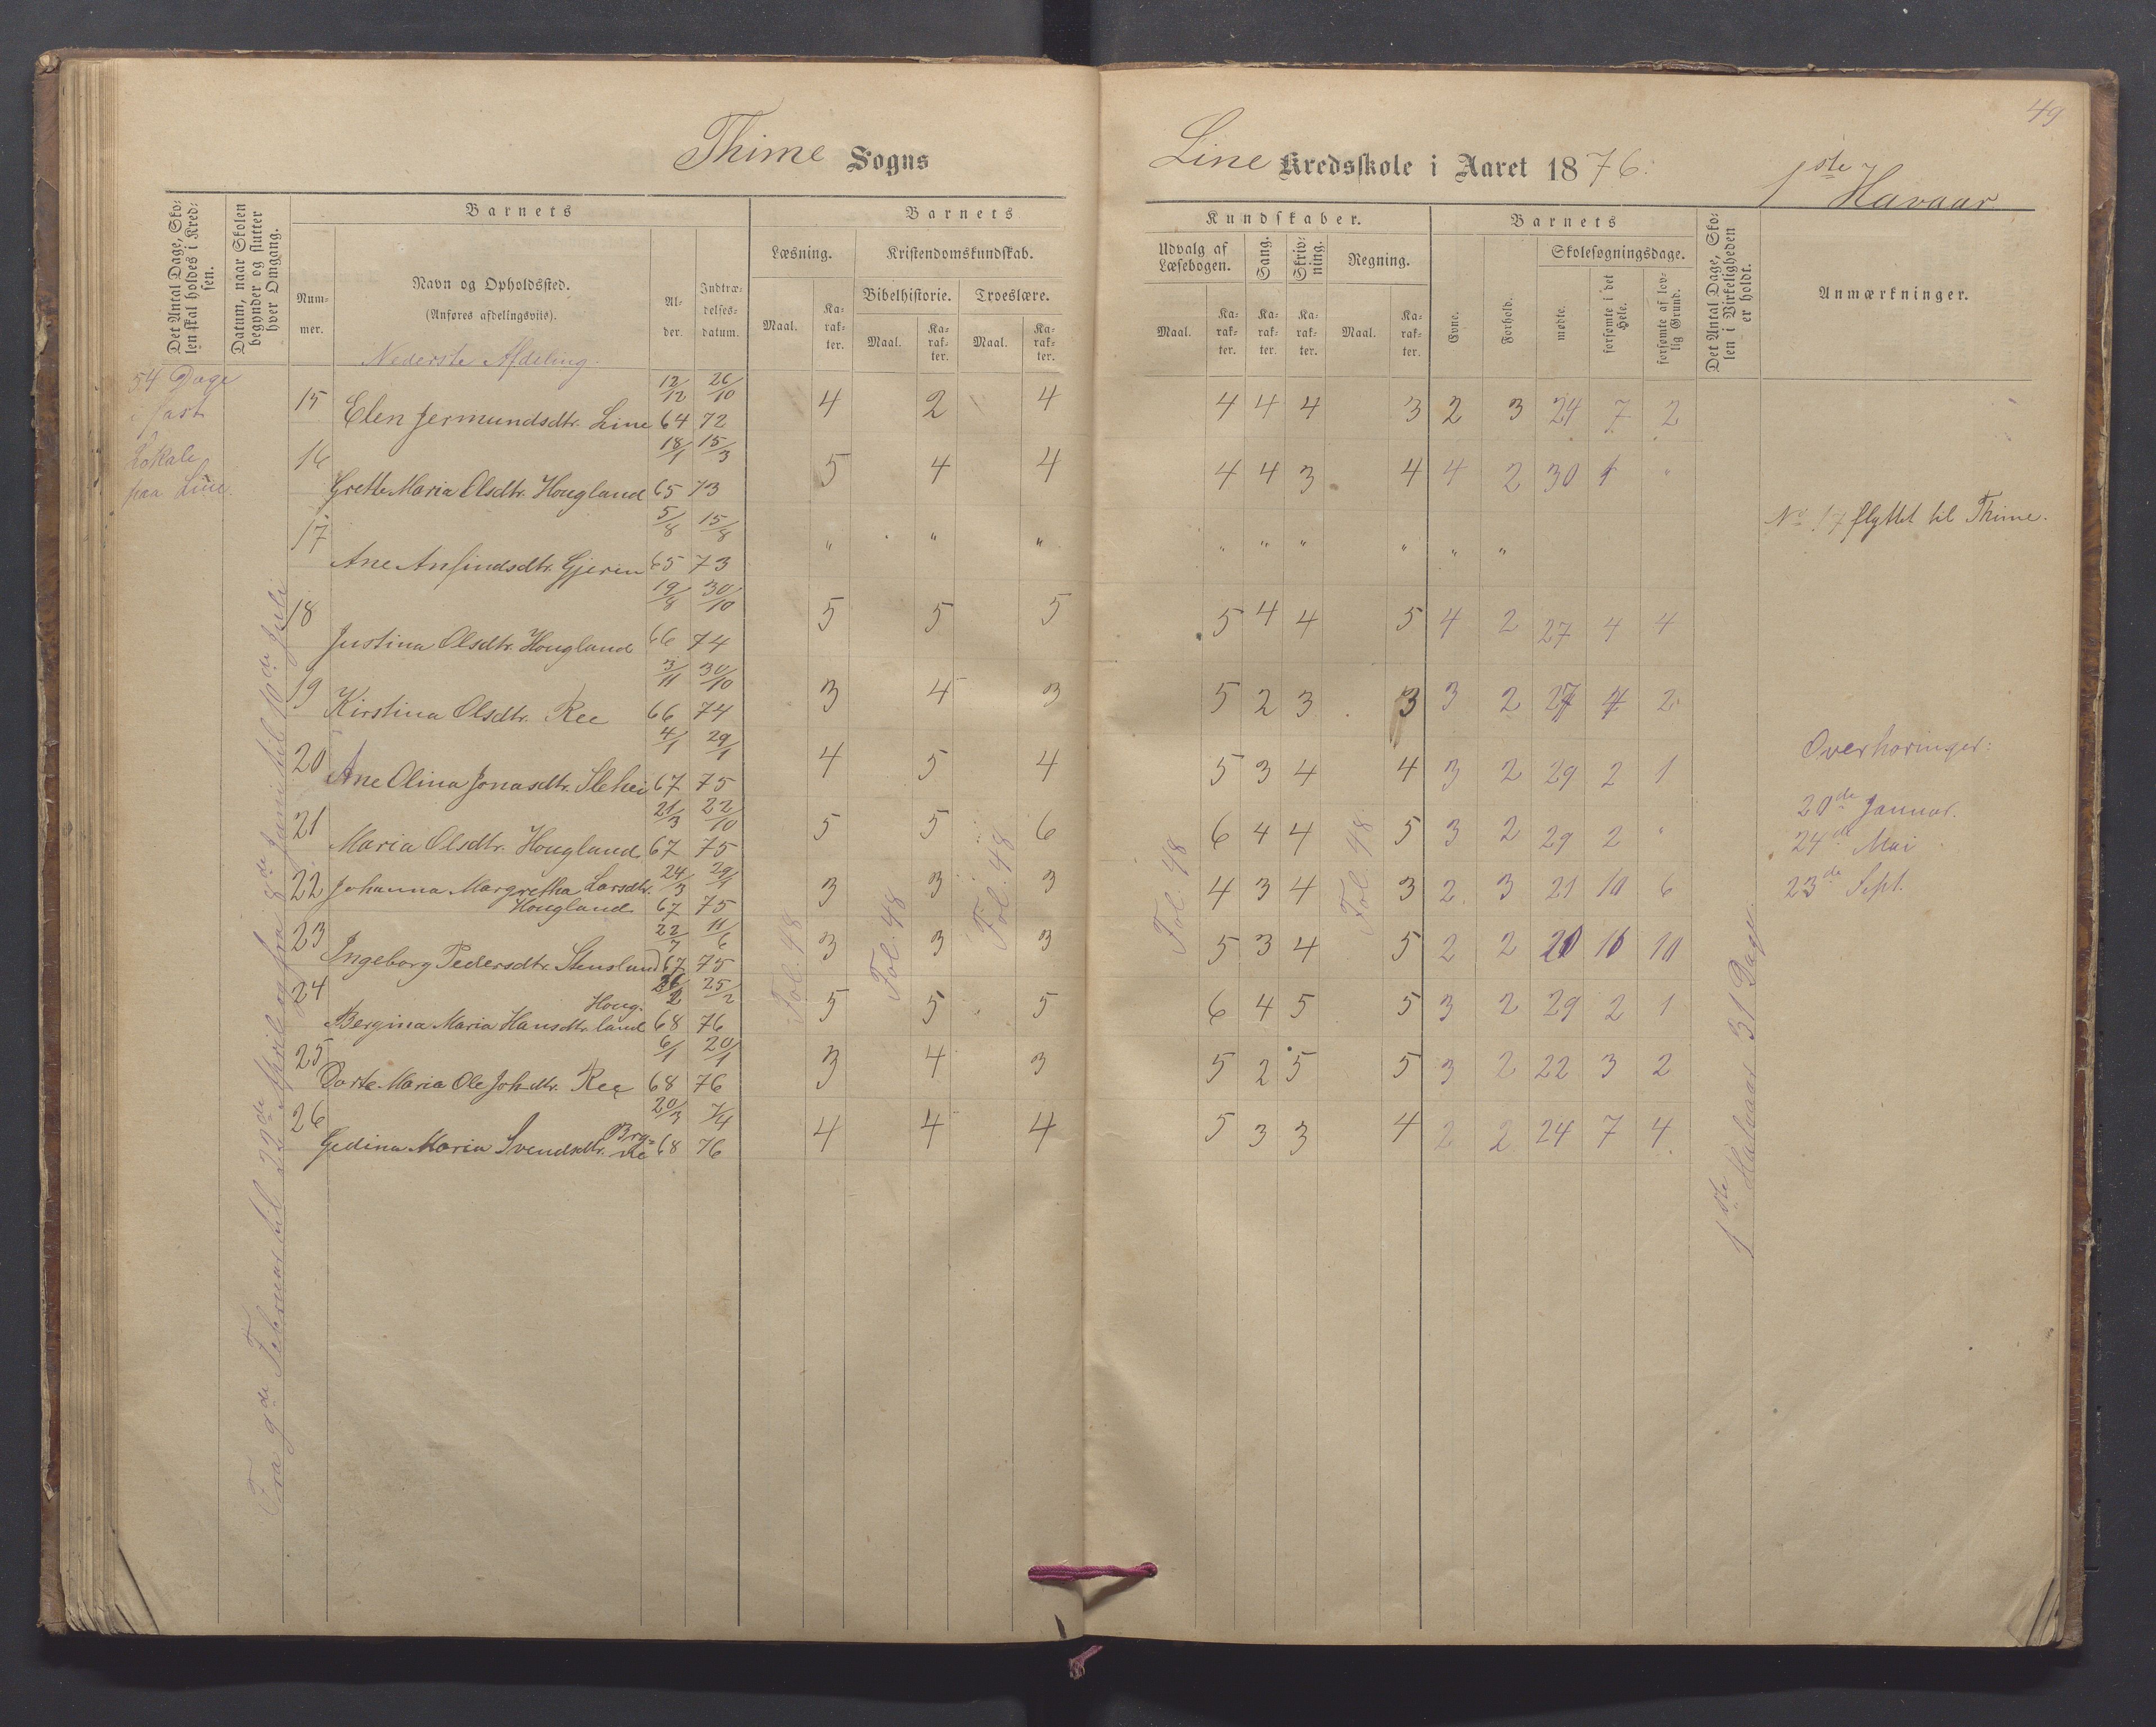 49
Thime Sogns
Line Kredsskole i Aaret 1876.
1ste Havaar.
Det Antal Dage, Skolen skal holdes i Kredsen.
Datum, naar Skolen begynder og slutter hver Omgang.
Barnets
Nummer.
Navn og Opholdssted.
(Anføres afdelingsviis).
Nederste Afdeling.
Alder.
Indtrædelsesdatum.
Barnets
Læsning.
Kristendomskundskab.
Bibelhistorie.
Troeslære.
Maal.
Karakter.
Maal.
Karakter.
Maal.
Karakter.
Kundskaber.
Udvalg af Læsebogen.
Sang.
Skrivning.
Regning.
Maal.
Karakter.
Karakter.
Karakter.
Maal.
Karakter.
Barnets
Evne.
Forhold.
Skolesøgningsdage.
mødte.
forsømte i det Hele.
forsømte af lovlig Grund.
Det Antal Dage, Skolen i Virkeligheden er holdt.
Anmærkninger.
54 Dage
i fast
Lokale
paa Line.
Fra 9de Februar til 22de April og fra 8de Juni til 10de Juli
15 Elen Jermundsdtr. Line 12/12 64 26/10 72 4 2 4 4 4 4 3 2 3 24 7 2
16 Grethe Maria Olsdtr. Hougland 18/1 65 15/3 73 5 4 4 4 4 3 4 4 2 30 1 "
17 Ane Anfindsdtr. Gjeren 5/8 65 15/8 73 " " " " " " " " "
No 17 flyttet til Thime.
18 Justina Olsdtr. Hougland 19/8 66 30/10 74 5 5 5 5 4 4 5 4 2 27 4 4
19 Kirstina Olsdtr. Ree 3/11 66 30/10 74 3 4 3 5 2 3 3 3 2 27 4 2
20 Ane Olina Jonasdtr. Slehei 4/1 67 29/1 75 4 5 4 5 3 4 4 3 2 29 2 1
21 Maria Olsdtr. Hougland 21/3 67 22/10 75 5 5 6 6 4 4 5 3 2 29 2 "
22 Johanna Margretha Larsdtr. Hougland 24/3 67 29/1 75 3 3 3 4 3 4 3 2 3 21 10 6
23 Ingeborg Pedersdtr. Stensland 22/7 67 11/6 75 3 3 3 5 3 4 5 2 2 10
24 Bergina Maria Hansdtr. Hougland 68 25/2 76 5 5 5 6 4 5 5 3 2 29 2 1
25 Dorte Maria Ole Joh-dtr. Ree 6/1 68 20/1 76 3 4 3 5 2 5 5 3 2 22 3 2
26 Gedina Maria Svendsdtr. Bryne 20/3 68 7/4 76 4 4 4 5 3 3 4 2 2 24 7 4
Fol. 48
Fol. 48
Fol. 48
Fol. 48
Fol. 48
1ste Halvaar 31 Dage.
Overhøringer:
20de Januar.
24de Mai
23de Sept.